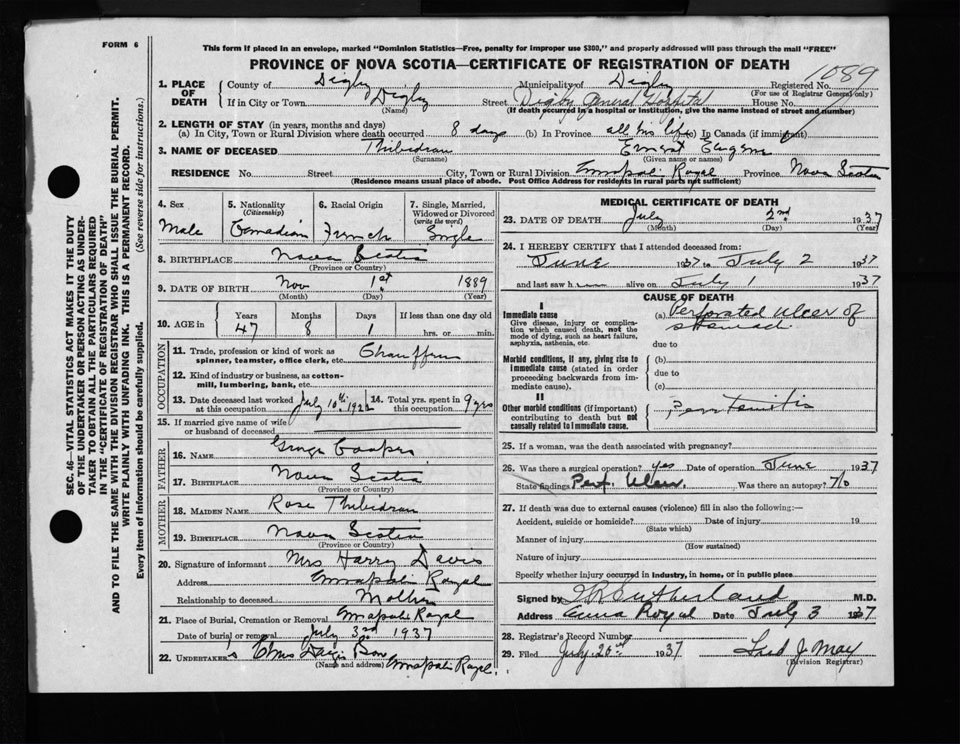 FORM 6
This form if placed in an envelope, marked "Dominion Statistics—Free, penalty for improper use $300," and properly addressed will pass through the mail "FREE"
PROVINCE OF NOVA SCOTIA—CERTIFICATE OF REGISTRATION OF DEATH
1089
1. PLACE OF DEATH County of Digby Municipality of Digby Registered No.
(For use of Registrar General only)
If in City or Town Digby Street Digby General Hospital House No.
(Name) (If death occurred in a hospital or institution, give the name instead of street and number)
2. LENGTH OF STAY (in years, months and days)
(a) In City, Town or Rural Division where death occurred 8 days (b) In Province all his life (c) In Canada (if immigrant)
3. NAME OF DECEASED Thibideau Ernest Eugene
(Surname) (Given name or names)
RESIDENCE No. Street City, Town or Rural Division Annapolis Royal Province Nova Scotia
(Residence means usual place of abode. Post Office Address for residents in rural parts not sufficient)
4. Sex 5. Nationality (Citizenship) 6. Racial Origin 7. Single, Married, Widowed or Divorced (write the word)
Male Canadian French Single
8. BIRTHPLACE Nova Scotia
(Province or Country)
9. DATE OF BIRTH Nov 1st 1889
(Month) (Day) (Year)
10. AGE in Years Months Days If less than one day old
47 8 1 hrs. or min.
OCCUPATION
11. Trade, profession or kind of work as spinner, teamster, office clerk, etc. Chauffeur
12. Kind of industry or business, as cotton-mill, lumbering, bank, etc.
13. Date deceased last worked at this occupation July 10th 1922 14. Total yrs. spent in this occupation 9 yrs
15. If married give name of wife or husband of deceased
FATHER
16. NAME George Cooper
17. BIRTHPLACE Nova Scotia
(Province or Country)
MOTHER
18. MAIDEN NAME Rose Thibideau
19. BIRTHPLACE Nova Scotia
(Province or Country)
20. Signature of informant Mrs Harry Davis
Address Annapolis Royal
Relationship to deceased Mother
21. Place of Burial, Cremation or Removal Annapolis Royal
Date of burial or removal July 3rd 1937
22. UNDERTAKER's Son Annapolis Royal.
(Name and address)
MEDICAL CERTIFICATE OF DEATH
23. DATE OF DEATH July 2nd 1937
(Month) (Day) (Year)
24. I HEREBY CERTIFY that I attended deceased from:
June 1937 to July 2 1937
and last saw him alive on July 1 1937
CAUSE OF DEATH
I
Immediate cause
Give disease, injury or complication which caused death, not the mode of dying, such as heart failure, asphyxia, asthenia, etc.
(a) Perforated Ulcer of stomach.
due to
Morbid conditions, if any, giving rise to immediate cause (stated in order proceeding backwards from immediate cause).
(b)
due to
(c)
II
Other morbid conditions (if important) contributing to death but not causally related to immediate cause.
Peritonitis
25. If a woman, was the death associated with pregnancy?
26. Was there a surgical operation? yes Date of operation June 1937
State findings Perf. Ulcer. Was there an autopsy? No
27. If death was due to external causes (violence) fill in also the following:—
Accident, suicide or homicide? Date of injury 19
(State which)
Manner of injury
(How sustained)
Nature of injury
Specify whether injury occurred in industry, in home, or in public place
Signed by Sutherland M.D.
Address Anna Royal Date July 3 1937
28. Registrar's Record Number
29. Filed July 26th 1937 Fred J May
(Division Registrar)
SEC. 46—VITAL STATISTICS ACT MAKES IT THE DUTY
OF THE UNDERTAKER OR PERSON ACTING AS UNDERTAKER TO OBTAIN ALL THE PARTICULARS REQUIRED
IN THE "CERTIFICATE OF REGISTRATION OF DEATH"
AND TO FILE THE SAME WITH THE DIVISION REGISTRAR WHO SHALL ISSUE THE BURIAL PERMIT.
WRITE PLAINLY WITH UNFADING INK. THIS IS A PERMANENT RECORD.
Every item of information should be carefully supplied. (See reverse side for instructions.)